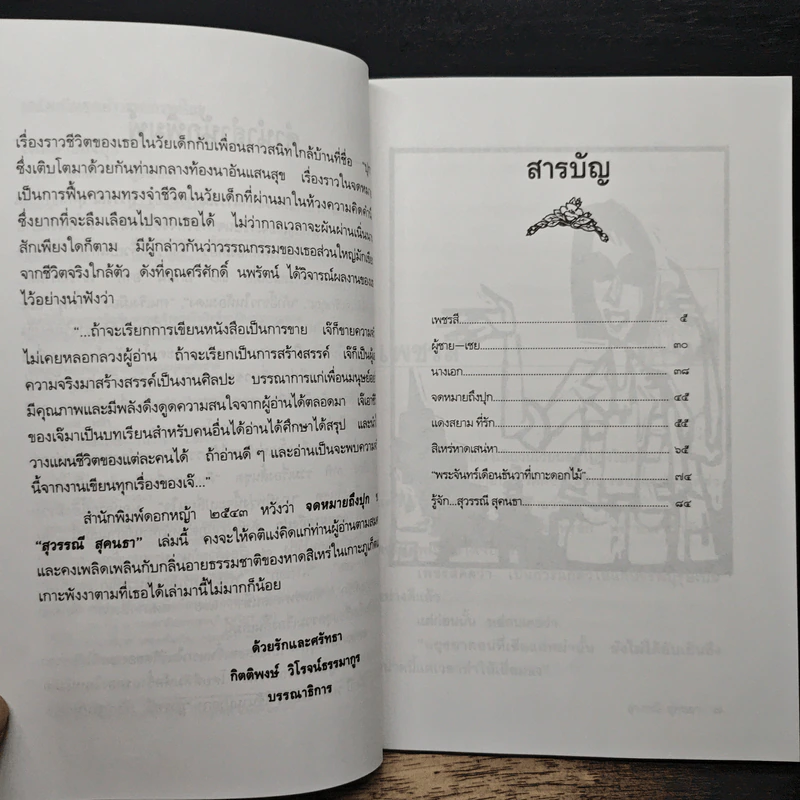 เรื่องราวชีวิตของเธอในวัยเด็กกับเพื่อนสาวสนิทใกล้บ้านที่ชื่อ
ซึ่งเติบโตมาด้วยกันท่ามกลางท้องนาอันแสนสุข เรื่องราวในจดหมาย
เป็นการฟื้นความทรงจำชีวิตในวัยเด็กที่ผ่านมาในห้วงความคิดคำนึง
ซึ่งยากที่จะลืมเลือนไปจากเธอได้ ไม่ว่ากาลเวลาจะผันผ่านเนิ่นนาน
สักเพียงใดก็ตาม มีผู้กล่าวกันว่าวรรณกรรมของเธอส่วนใหญ่มัก
จากชีวิตจริงใกล้ตัว ดังที่คุณศรีศักดิ์ นพรัตน์ ได้วิจารณ์ผลงาน
ไว้อย่างน่าฟังว่า
“...ถ้าจะเรียกการเขียนหนังสือเป็นการขาย เจ๊ก็ขายความ
ไม่เคยหลอกลวงผู้อ่าน ถ้าจะเรียกเป็นการสร้างสรรค์ เจ๊ก็เป็น
ความจริงมาสร้างสรรค์เป็นงานศิลปะ บรรณาการแก่เพื่อนมนุษย์
มีคุณภาพและมีพลังดึงดูดความสนใจจากผู้อ่านได้ตลอดมา
ของเจ๊มาเป็นบทเรียนสำหรับคนอื่นได้อ่านได้ศึกษาได้สรุป
วางแผนชีวิตของแต่ละคนได้ ถ้าอ่านดี ๆ และอ่านเป็นจะพบความ
นี้จากงานเขียนทุกเรื่องของเจ๊...”
สำนักพิมพ์ดอกหญ้า ๒๕๔๓ หวังว่า จดหมายถึงปุก
“สุวรรณี สุคนธา” เล่มนี้ คงจะให้คติแง่คิดแก่ท่านผู้อ่านตาม
และคงเพลิดเพลินกับกลิ่นอายธรรมชาติของหาดสิเหร่ในเกาะภูเก็ต
เกาะพังงาตามที่เธอได้เล่ามานี้ไม่มากก็น้อย
ด้วยรักและศรัทธา
กิตติพงษ์ วิโรจน์ธรรมากูร
บรรณาธิการ
สารบัญ
เพชรสี....๕
ผู้ชาย—เชย....๓๐
นางเอก....๓๘
จดหมายถึงปุก....๔๕
แดงสยาม ที่รัก....๕๕
สิเหร่หาดเสน่หา....๖๕
“พระจันทร์เดือนธันวาที่เกาะดอกไม้”....๗๔
รู้จัก...สุวรรณี สุคนธา....๘๔